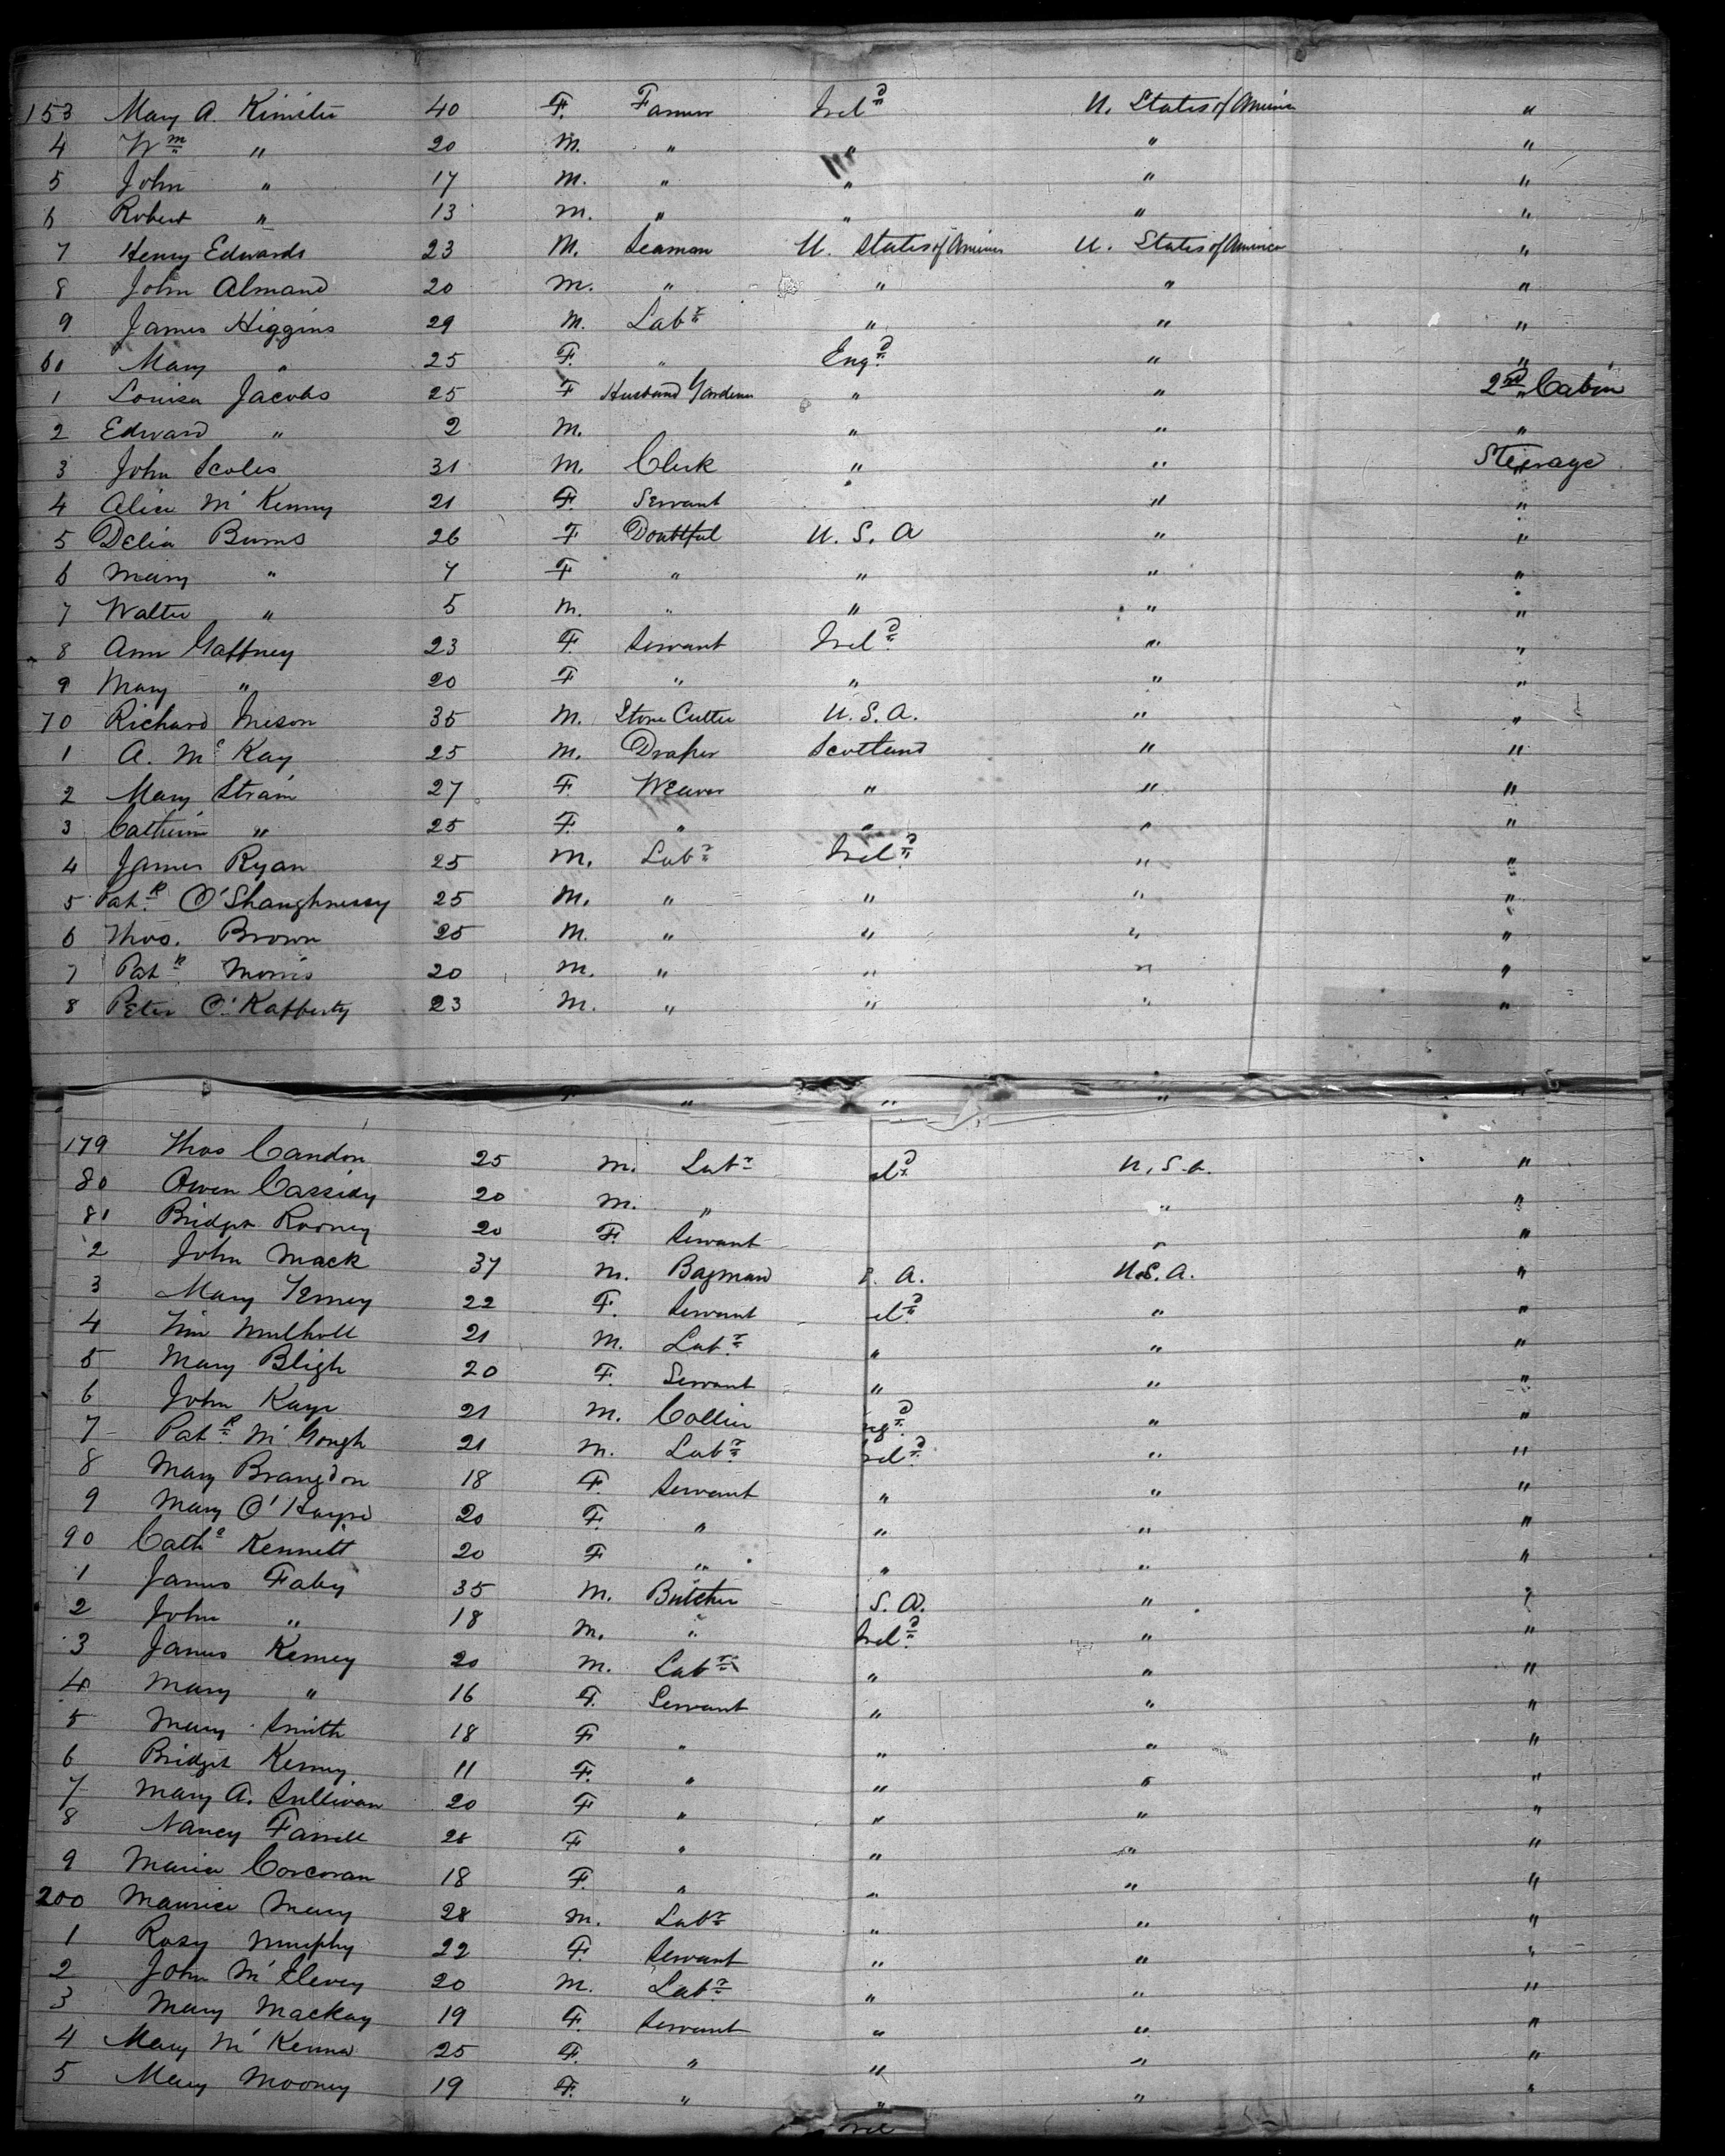 153 Mary A. Kimster 40 F. Farmer Irel.d U. States of America "
4 Wm " 20 M. " " " "
5 John " 17 M. " " " "
6 Robert " 13 M. " " " "
7 Henry Edwards 23 M. Seaman U. States of America U. States of America "
8 John Almand 20 M. " " " "
9 James Higgins 29 M. Labr " " "
60 Mary " 25 F. " Eng.d " "
1 Louisa Jacobs 25 F Husband Gardener " " 2nd Cabin
2 Edward " 2 M. " " "
3 John Scoles 31 M. Clerk " " Steerage
4 Alice Mc Kenny 21 F. Servant " "
5 Delia Burns 26 F Doubtful U. S. A " "
6 Mary " 7 F " " " "
7 Walter " 5 M. " " " "
8 Ann Gaffney 23 F. Servant Irel.d " "
9 Mary " 20 F " " " "
70 Richard 35 M. Stone Cutter U. S. A. " "
1 A. Mc Kay 25 M. Draper Scotland " "
2 Mary Strain 27 F. Weaver " " "
3 Catherine " 25 F. " " " "
4 James Ryan 25 M. Labr Irel.d " "
5 Patk. O'Shaughnessy 25 M. " " " "
6 Thos. Brown 25 M. " " " "
7 Patk Morris 20 M. " " " "
8 Peter O'Rafferty 23 M. " " " "
F " " "
179 Thos Candon 25 M. Labr eld U. S. A. "
80 Owen Cassidy 20 M. " " "
81 Bridget Rooney 20 F. Servant " "
2 John Mack 37 M. Bagman S. A. U.S. A. "
3 Mary 22 F. Servant eld " "
4 Tim Mulholl 21 M. Labr " " "
5 Mary Bligh 20 F. Servant " " "
6 John Kaye 21 M. Collier ng.d " "
7 Patk Mc Gough 21 M. Labr Irel.d " "
8 Mary Brangdon 18 F. Servant " " "
9 Mary 20 F. " " " "
90 Cathe Kennett 20 F " " " "
1 James Fahy 35 M. Butcher S. A. " "
2 John " 18 M. " Irel.d " "
3 James Kerney 20 M. Labr " " "
4 Mary " 16 F. Servant " " "
5 Mary Smith 18 F " " " "
6 Bridget Kerney 11 F. " " " "
7 Mary A. Sullivan 20 F " " " "
8 Nancy Farrell 28 F " " " "
9 Maria Corcoran 18 F. " " " "
200 Maurice 28 M. Labr " " "
1 Rosy Murphy 22 F. Servant " " "
2 John Mc Elevey 20 M. Labr " " "
3 Mary Mackay 19 F. Servant " " "
4 Mary Mc Kenna 25 F. " " " "
5 Mary Mooney 19 F. " " " "